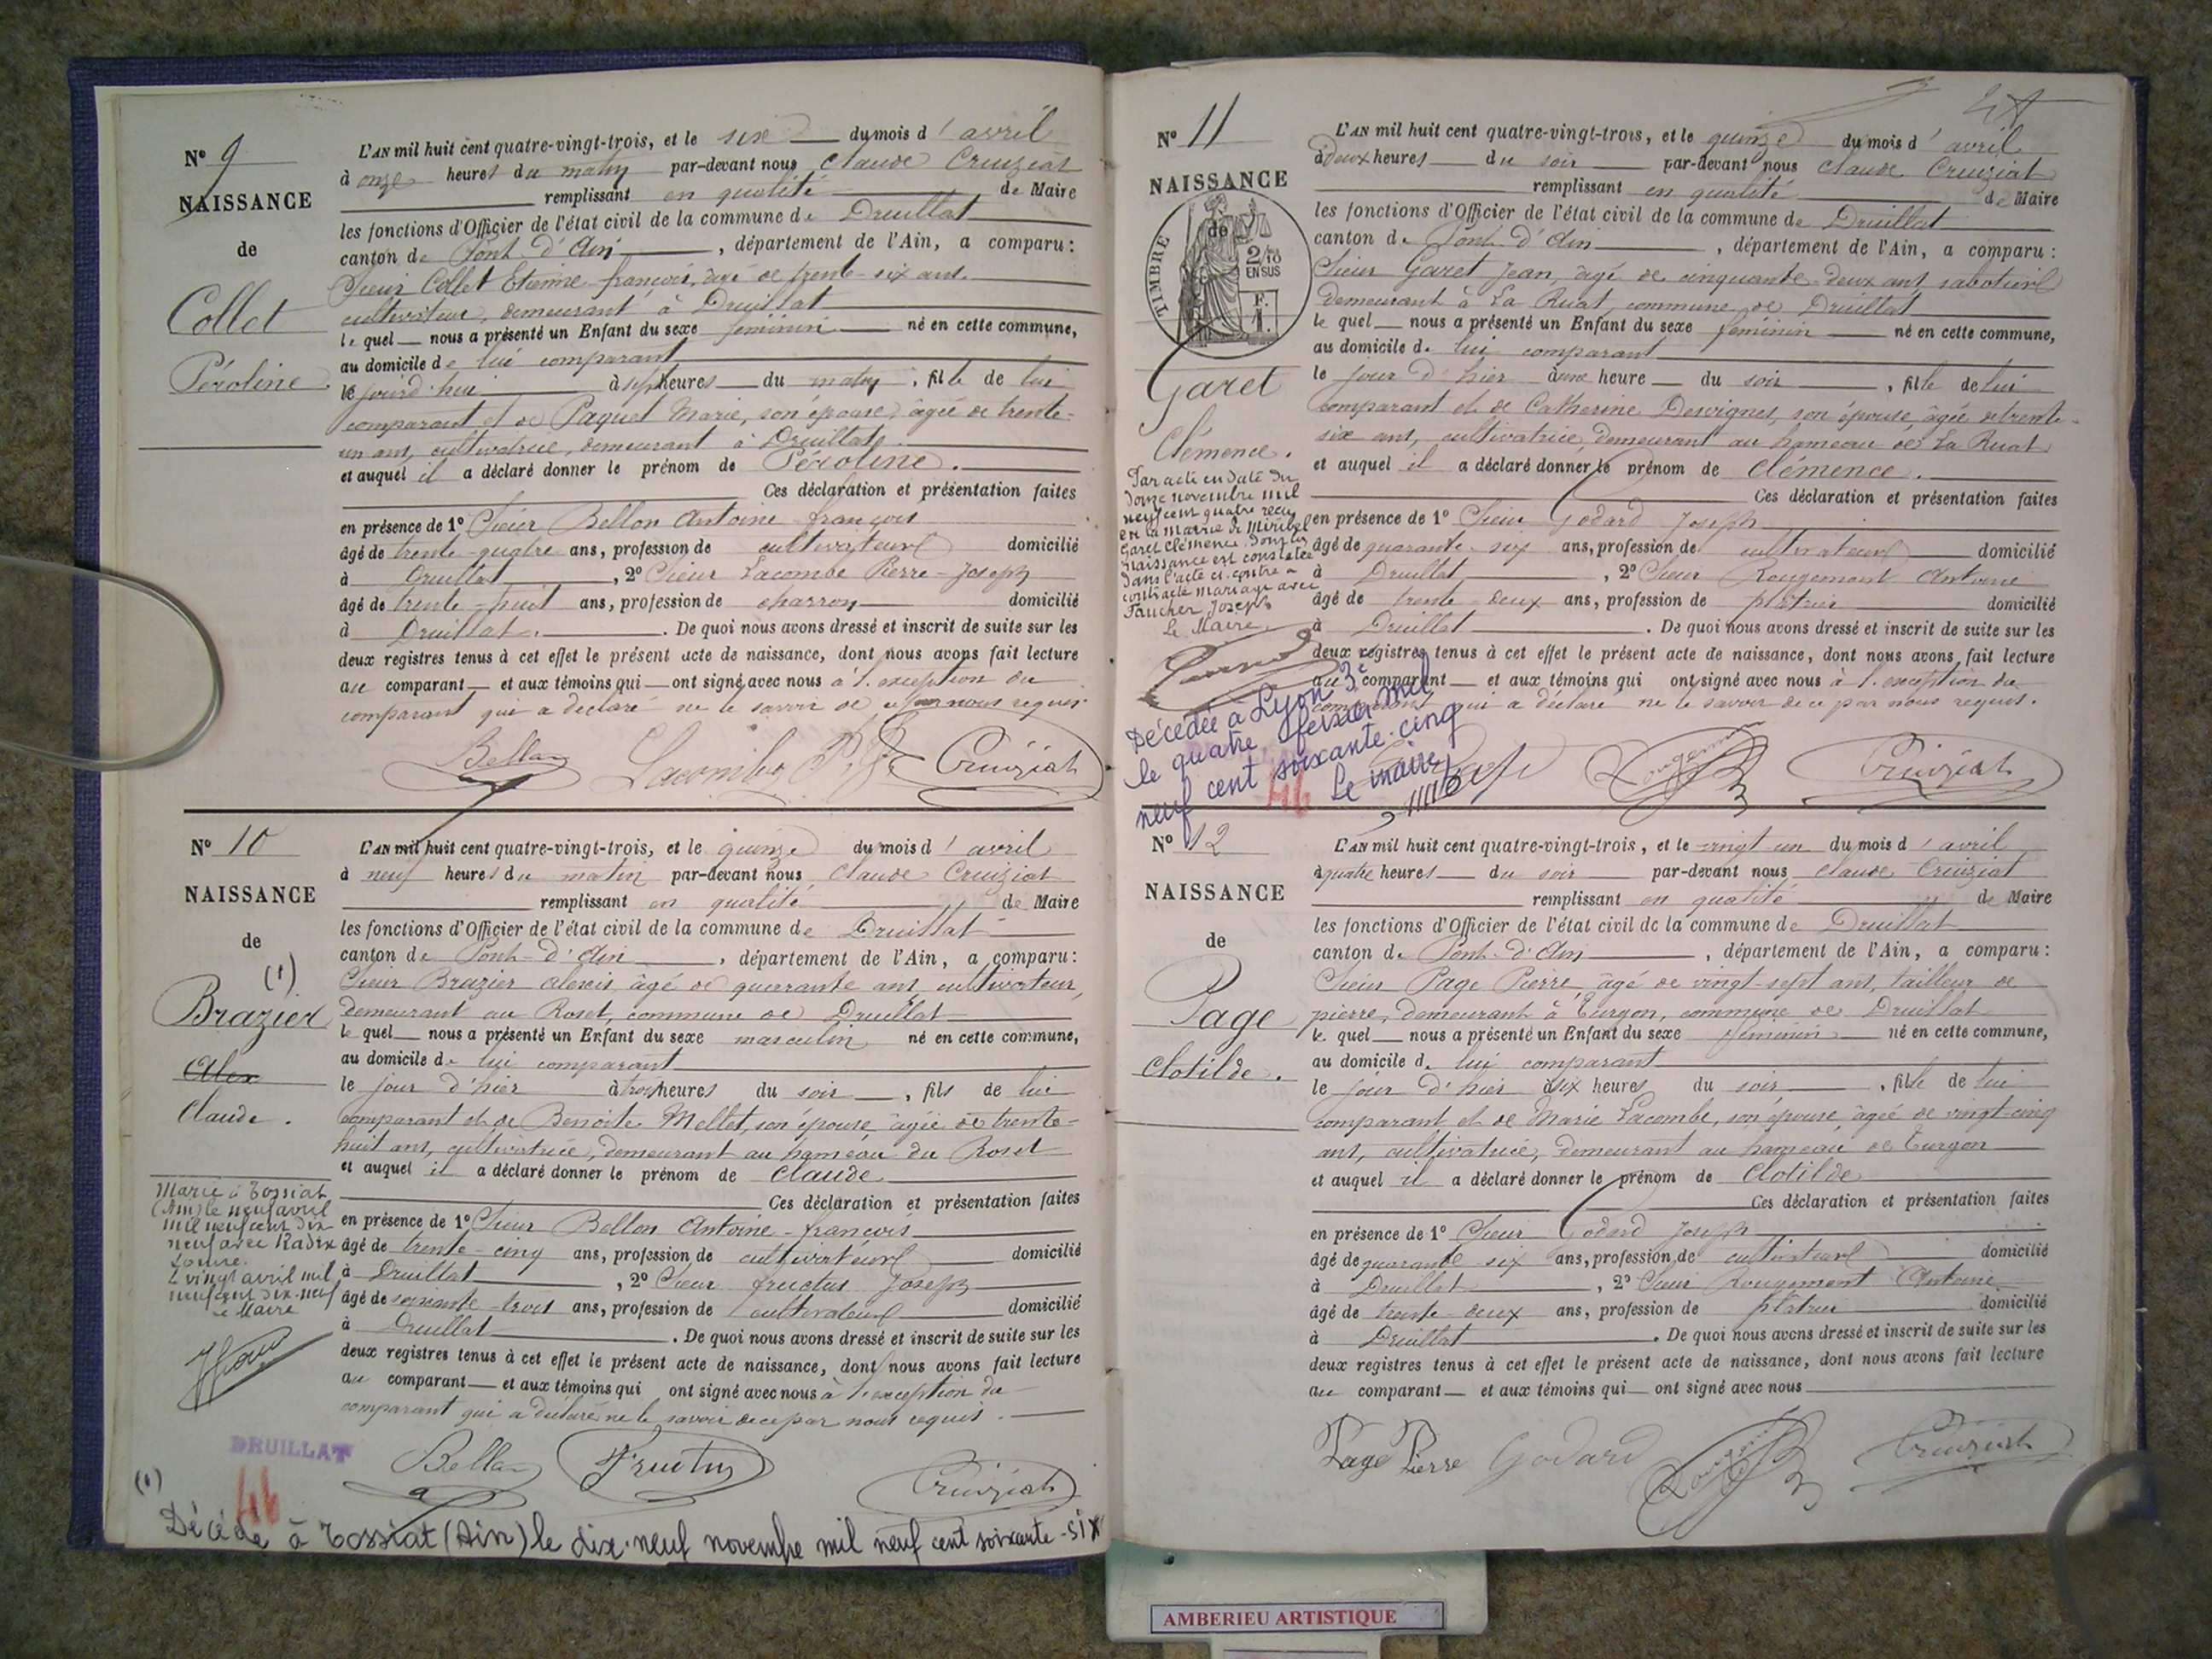 N° 9
NAISSANCE
de
Collet
Péroline
L'AN mil huit cent quatre-vingt-trois, et le six du mois d'avril
à onze heures du matin par-devant nous Claude Cruiziat
remplissant en qualité de Maire
les fonctions d'Officier de l'état civil de la commune de Druillat
canton de Pont-d'Ain, département de l'Ain, a comparu :
Sieur Collet Etienne françois, âgé de trente-six ans
cultivateur, demeurant à Druillat
le quel nous a présenté un Enfant du sexe féminin né en cette commune,
au domicile de lui comparant
le jourd'hui à sept heures du matin, fille de lui
comparant et de Paquet Marie, son épouse, âgée de trente-
un ans, cultivatrice, demeurant à Druillat.
et auquel il a déclaré donner le prénom de Péroline.
Ces déclaration et présentation faites
en présence de 1° Sieur Bellon Antoine françois
âgé de trente-quatre ans, profession de cultivateur domicilié
à Druillat, 2° Sieur Lacombe Pierre-Joseph
âgé de trente-huit ans, profession de charron domicilié
à Druillat. De quoi nous avons dressé et inscrit de suite sur les
deux registres tenus à cet effet le présent acte de naissance, dont nous avons fait lecture
au comparant et aux témoins qui ont signé avec nous à l'exception du
comparant qui a déclaré ne le savoir de ce par nous requis
Bellon Lacombe P. J. Cruiziat
N° 10
NAISSANCE
de
(1)
Brazier
Alex
Claude.
Marié à Tossiat
(Ain) le neuf avril
mil neuf cent dix
neuf avec Radix
Louise.
Le vingt avril mil
neuf cent dix-neuf
Le Maire
L'AN mil huit cent quatre-vingt-trois, et le quinze du mois d'avril
à neuf heures du matin par-devant nous Claude Cruiziat
remplissant en qualité de Maire
les fonctions d'Officier de l'état civil de la commune de Druillat
canton de Pont-d'Ain, département de l'Ain, a comparu :
Sieur Brazier Alexis, âgé de quarante ans, cultivateur,
demeurant au Roset, commune de Druillat
le quel nous a présenté un Enfant du sexe masculin né en cette commune,
au domicile de lui comparant
le jour d'hier à trois heures du soir, fils de lui
comparant et de Benoite Mellet, son épouse, âgée de trente-
huit ans, cultivatrice, demeurant au hameau du Roset
et auquel il a déclaré donner le prénom de Claude
Ces déclaration et présentation faites
en présence de 1° Sieur Bellon Antoine-françois
âgé de trente-cinq ans, profession de cultivateur domicilié
à Druillat, 2° Sieur fructus Joseph
âgé de soixante-trois ans, profession de cultivateur domicilié
à Druillat. De quoi nous avons dressé et inscrit de suite sur les
deux registres tenus à cet effet le présent acte de naissance, dont nous avons fait lecture
au comparant et aux témoins qui ont signé avec nous à l'exception du
comparant qui a déclaré ne le savoir de ce par nous requis.
DRUILLAT
Bellon Fructus Cruiziat
(1)
Décédé à Tossiat (Ain) le dix-neuf novembre mil neuf cent soixante-six
N° 11
NAISSANCE
de
TIMBRE
2/10
EN SUS
F.
1.
Garet
Clémence.
Par acte en date du
douze novembre mil
neuf cent quatre reçu
en la mairie de Miribel
Garet Clémence dont la
naissance est constatée
dans l'acte ci-contre a
contracté mariage avec
Faucher Joseph
Le Maire,
Décédée à Lyon 3e
le quatre février mil
neuf cent soixante-cinq
Le maire,
L'AN mil huit cent quatre-vingt-trois, et le quinze du mois d'avril
à deux heures du soir par-devant nous Claude Cruiziat
remplissant en qualité de Maire
les fonctions d'Officier de l'état civil de la commune de Druillat
canton de Pont-d'Ain, département de l'Ain, a comparu :
Sieur Garet Jean, âgé de cinquante-deux ans, sabotier
demeurant à La Ruat, commune de Druillat
le quel nous a présenté un Enfant du sexe féminin né en cette commune,
au domicile de lui comparant
le jour d'hier à une heure du soir, fille de lui
comparant et de Catherine Desvignes, son épouse, âgée de trente-
six ans, cultivatrice, demeurant au hameau de La Ruat
et auquel il a déclaré donner le prénom de Clémence.
Ces déclaration et présentation faites
en présence de 1° Sieur Godard Joseph
âgé de quarante-six ans, profession de cultivateur domicilié
à Druillat, 2° Sieur Rougemont Antoine
âgé de trente-deux ans, profession de plâtrier domicilié
à Druillat. De quoi nous avons dressé et inscrit de suite sur les
deux registres tenus à cet effet le présent acte de naissance, dont nous avons fait lecture
au comparant et aux témoins qui ont signé avec nous à l'exception du
comparant qui a déclaré ne le savoir de ce par nous requis.
Rougemont Cruiziat
N° 12
NAISSANCE
de
Page
Clotilde.
L'AN mil huit cent quatre-vingt-trois, et le vingt-un du mois d'avril
à quatre heures du soir par-devant nous Claude Cruiziat
remplissant en qualité de Maire
les fonctions d'Officier de l'état civil de la commune de Druillat
canton de Pont-d'Ain, département de l'Ain, a comparu :
Sieur Page Pierre, âgé de vingt-sept ans, tailleur de
pierre, demeurant à Turgon, commune de Druillat
le quel nous a présenté un Enfant du sexe féminin né en cette commune,
au domicile de lui comparant
le jour d'hier à six heures du soir, fille de lui
comparant et de Marie Lacombe, son épouse, âgée de vingt-cinq
ans, cultivatrice, demeurant au hameau de Turgon
et auquel il a déclaré donner le prénom de Clotilde
Ces déclaration et présentation faites
en présence de 1° Sieur Godard Joseph
âgé de quarante six ans, profession de cultivateur domicilié
à Druillat, 2° Sieur Rougemont Antoine
âgé de trente-deux ans, profession de plâtrier domicilié
à Druillat. De quoi nous avons dressé et inscrit de suite sur les
deux registres tenus à cet effet le présent acte de naissance, dont nous avons fait lecture
au comparant et aux témoins qui ont signé avec nous
Page Pierre Godard Rougemont Cruiziat
AMBERIEU ARTISTIQUE